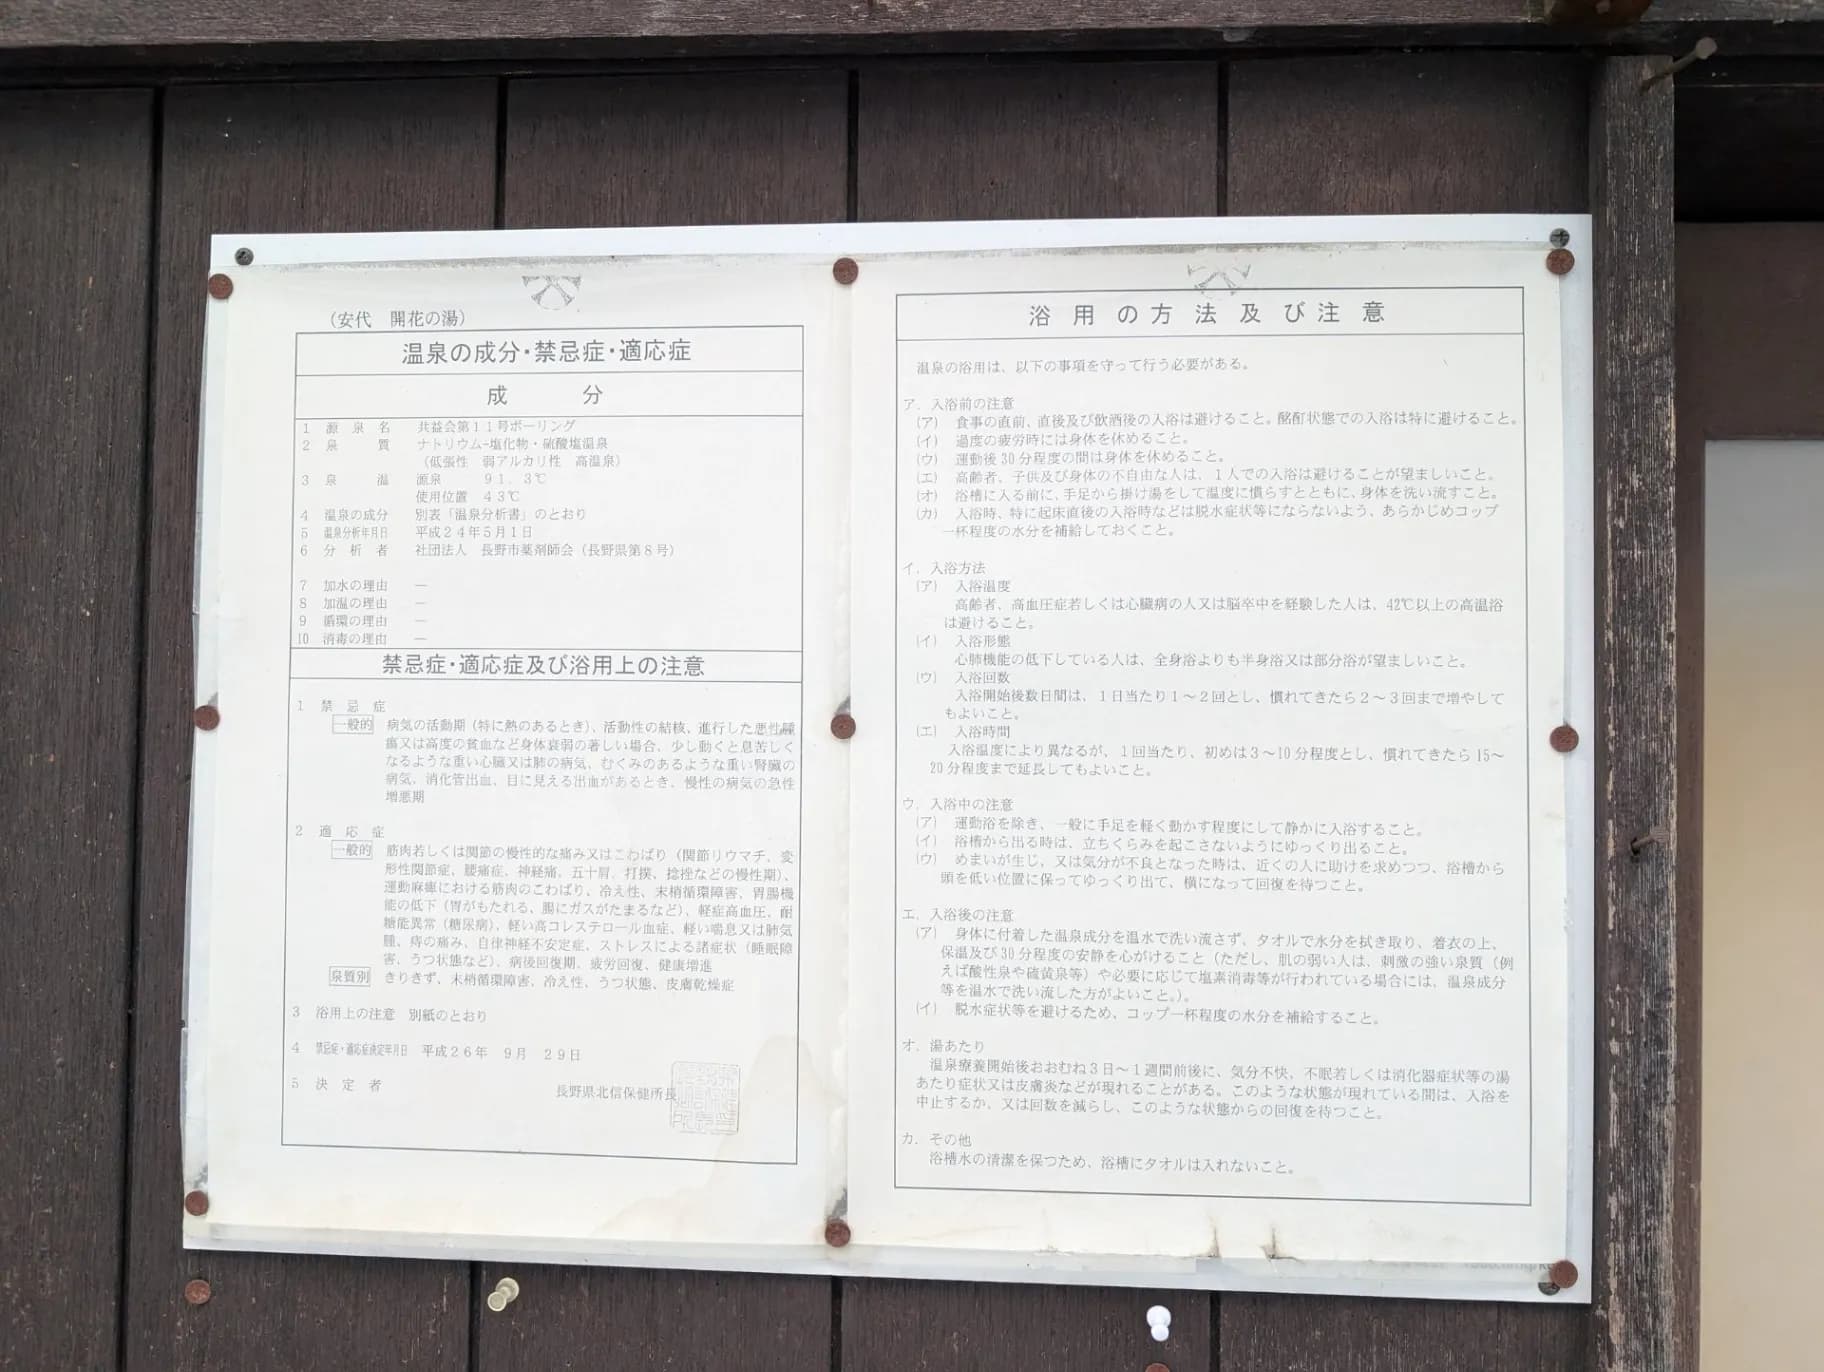 （安代　開花の湯）
温泉の成分・禁忌症・適応症
成　分
1　源泉名　共益会第１１号ボーリング
2　泉質　ナトリウム-塩化物・硫酸塩温泉
（低張性　弱アルカリ性　高温泉）
3　泉温　源泉　９１．３℃
使用位置　４３℃
4　温泉の成分　別表「温泉分析書」のとおり
5　温泉分析年月日　平成２４年５月１日
6　分析者　社団法人　長野市薬剤師会（長野県第８号）
7　加水の理由　―
8　加温の理由　―
9　循環の理由　―
10　消毒の理由　―
禁忌症・適応症及び浴用上の注意
1　禁忌症
一般的　病気の活動期（特に熱のあるとき）、活動性の結核、進行した悪性腫
瘍又は高度の貧血など身体衰弱の著しい場合、少し動くと息苦しく
なるような重い心臓又は肺の病気、むくみのあるような重い腎臓の
病気、消化管出血、目に見える出血があるとき、慢性の病気の急性
増悪期
2　適応症
一般的　筋肉若しくは関節の慢性的な痛み又はこわばり（関節リウマチ、変
形性関節症、腰痛症、神経痛、五十肩、打撲、捻挫などの慢性期）、
運動麻痺における筋肉のこわばり、冷え性、末梢循環障害、胃腸機
能の低下（胃がもたれる、腸にガスがたまるなど）、軽症高血圧、耐
糖能異常（糖尿病）、軽い高コレステロール血症、軽い喘息又は肺気
腫、痔の痛み、自律神経不安定症、ストレスによる諸症状（睡眠障
害、うつ状態など）、病後回復期、疲労回復、健康増進
泉質別　きりきず、末梢循環障害、冷え性、うつ状態、皮膚乾燥症
3　浴用上の注意　別紙のとおり
4　禁忌症・適応症決定年月日　平成２６年　９月　２９日
5　決定者　長野県北信保健所長
浴用の方法及び注意
温泉の浴用は、以下の事項を守って行う必要がある。
ア．入浴前の注意
（ア）　食事の直前、直後及び飲酒後の入浴は避けること。酩酊状態での入浴は特に避けること。
（イ）　過度の疲労時には身体を休めること。
（ウ）　運動後30分程度の間は身体を休めること。
（エ）　高齢者、子供及び身体の不自由な人は、１人での入浴は避けることが望ましいこと。
（オ）　浴槽に入る前に、手足から掛け湯をして温度に慣らすとともに、身体を洗い流すこと。
（カ）　入浴時、特に起床直後の入浴時などは脱水症状等にならないよう、あらかじめコップ
一杯程度の水分を補給しておくこと。
イ．入浴方法
（ア）　入浴温度
高齢者、高血圧症若しくは心臓病の人又は脳卒中を経験した人は、42℃以上の高温浴
は避けること。
（イ）　入浴形態
心肺機能の低下している人は、全身浴よりも半身浴又は部分浴が望ましいこと。
（ウ）　入浴回数
入浴開始後数日間は、１日当たり１～２回とし、慣れてきたら２～３回まで増やして
もよいこと。
（エ）　入浴時間
入浴温度により異なるが、１回当たり、初めは３～10分程度とし、慣れてきたら15～
20分程度まで延長してもよいこと。
ウ．入浴中の注意
（ア）　運動浴を除き、一般に手足を軽く動かす程度にして静かに入浴すること。
（イ）　浴槽から出る時は、立ちくらみを起こさないようにゆっくり出ること。
（ウ）　めまいが生じ、又は気分が不良となった時は、近くの人に助けを求めつつ、浴槽から
頭を低い位置に保ってゆっくり出て、横になって回復を待つこと。
エ．入浴後の注意
（ア）　身体に付着した温泉成分を温水で洗い流さず、タオルで水分を拭き取り、着衣の上、
保温及び30分程度の安静を心がけること（ただし、肌の弱い人は、刺激の強い泉質（例
えば酸性泉や硫黄泉等）や必要に応じて塩素消毒等が行われている場合には、温泉成分
等を温水で洗い流した方がよいこと。）。
（イ）　脱水症状等を避けるため、コップ一杯程度の水分を補給すること。
オ．湯あたり
温泉療養開始後おおむね３日～１週間前後に、気分不快、不眠若しくは消化器症状等の湯
あたり症状又は皮膚炎などが現れることがある。このような状態が現れている間は、入浴を
中止するか、又は回数を減らし、このような状態からの回復を待つこと。
カ．その他
浴槽水の清潔を保つため、浴槽にタオルは入れないこと。